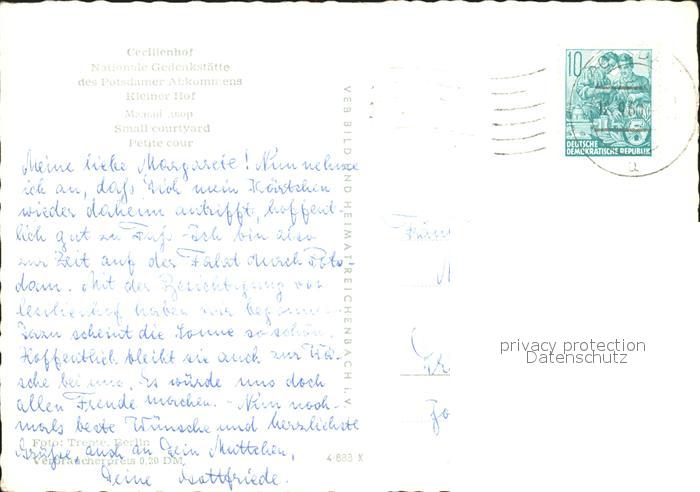 Cecilienhof
Nationale Gedenkstätte
des Potsdamer Abkommens
Kleiner Hof
Малый двор
Small courtyard
Petite cour
Meine liebe Margarete! Nun nehme
ich an, daß Dich mein Kärtchen
wieder daheim antrifft, hoffent-
lich gut zu Fuß. Ich bin also
zur Zeit auf der Fahrt durch Pots-
dam. Mit der Besichtigung von
Cecilienhof haben wir begonnen.
Dazu scheint die Sonne so schön.
Hoffentlich bleibt sie auch zur Wä-
sche bei uns. Es würde uns doch
allen Freude machen. - Nun noch-
mals beste Wünsche und herzlichste
Grüße, auch an Dein Muttchen,
Deine Gottfriede.
Foto: Trepte, Berlin
Verbraucherpreis 0,20 DM
4 888 X
VEB BILD UND HEIMAT REICHENBACH I. V.
10
DEUTSCHE
DEMOKRATISCHE REPUBLIK
privacy protection
Datenschutz